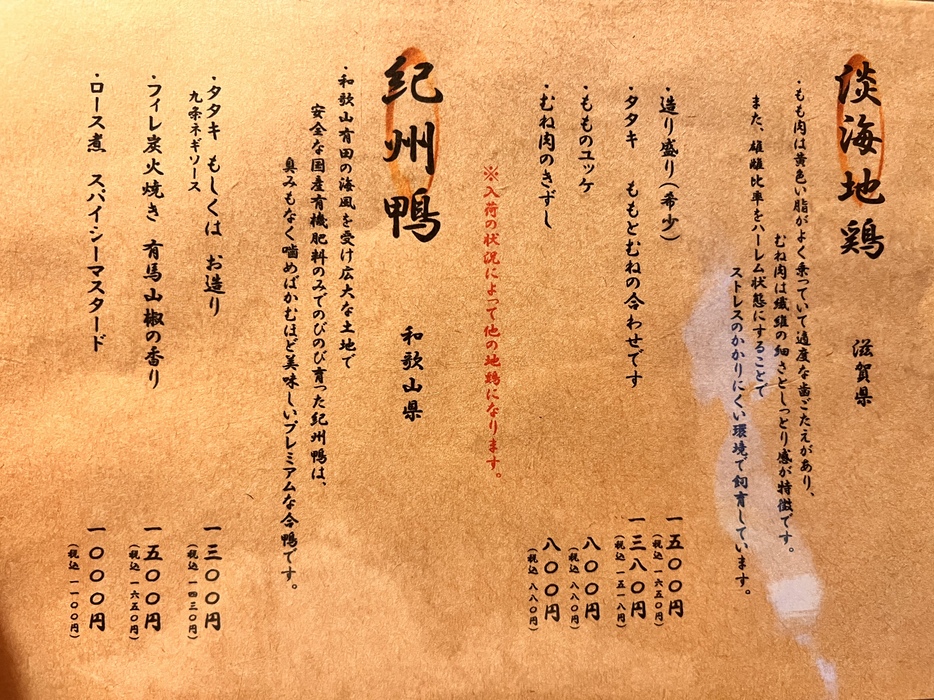 淡海地鶏 滋賀県
・もも肉は黄色い脂がよく乗っていて適度な歯ごたえがあり、
むね肉は繊維の細さとしっとり感が特徴です。
また、雄雌比率をハーレム状態にすることで
ストレスのかかりにくい環境で飼育しています。
・造り盛り(希少) 一五〇〇円
(税込 一六五〇円)
・タタキ ももとむねの合わせです 一三八〇円
(税込 一五一八円)
・もものユッケ 八〇〇円
(税込 八八〇円)
・むね肉のきずし 八〇〇円
(税込 八八〇円)
※入荷の状況によって他の地鶏になります。
紀州鴨 和歌山県
・和歌山有田の海風を受け広大な土地で
安全な国産有機肥料のみでのびのび育った紀州鴨は、
臭みもなく噛めばかむほど美味しいプレミアムな合鴨です。
・タタキ もしくは お造り 一三〇〇円
九条ネギソース (税込 一四三〇円)
・フィレ炭火焼き 有馬山椒の香り 一五〇〇円
(税込 一六五〇円)
・ロース煮 スパイシーマスタード 一〇〇〇円
(税込 一一〇〇円)